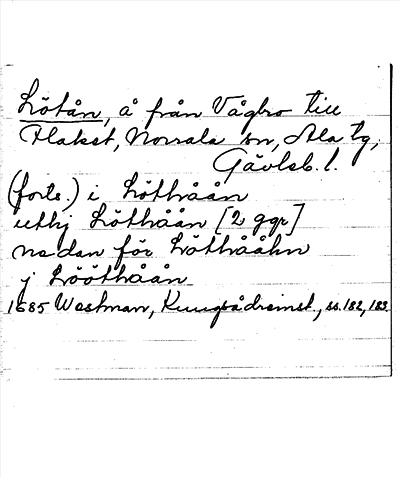 Lötån, å från Vågbro till
Flakset, Norrala sn, Ala tg,
Gävleb. l.
(forts.) i Löthåån
uthj Löthåån [2 ggr]
nedan för Löthrååhn
j Lrööthåån
1685 Westman, Kungsådreinst., ss. 182, 183